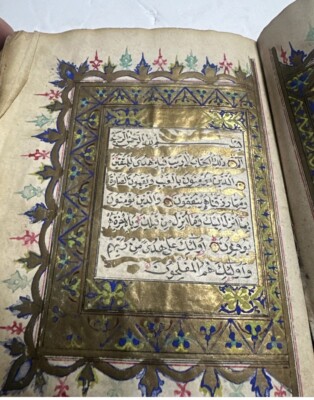 بسم الله الرحمن الرحيم
الم ذلك الكتاب لا ريب فيه هدى للمتقين
الذين يؤمنون بالغيب ويقيمون الصلوة
ومما رزقناهم ينفقون والذين يؤمنون
بما انزل اليك وما انزل من قبلك وبالاخرة
هم يوقنون اولئك على هدى من ربهم
واولئك هم المفلحون